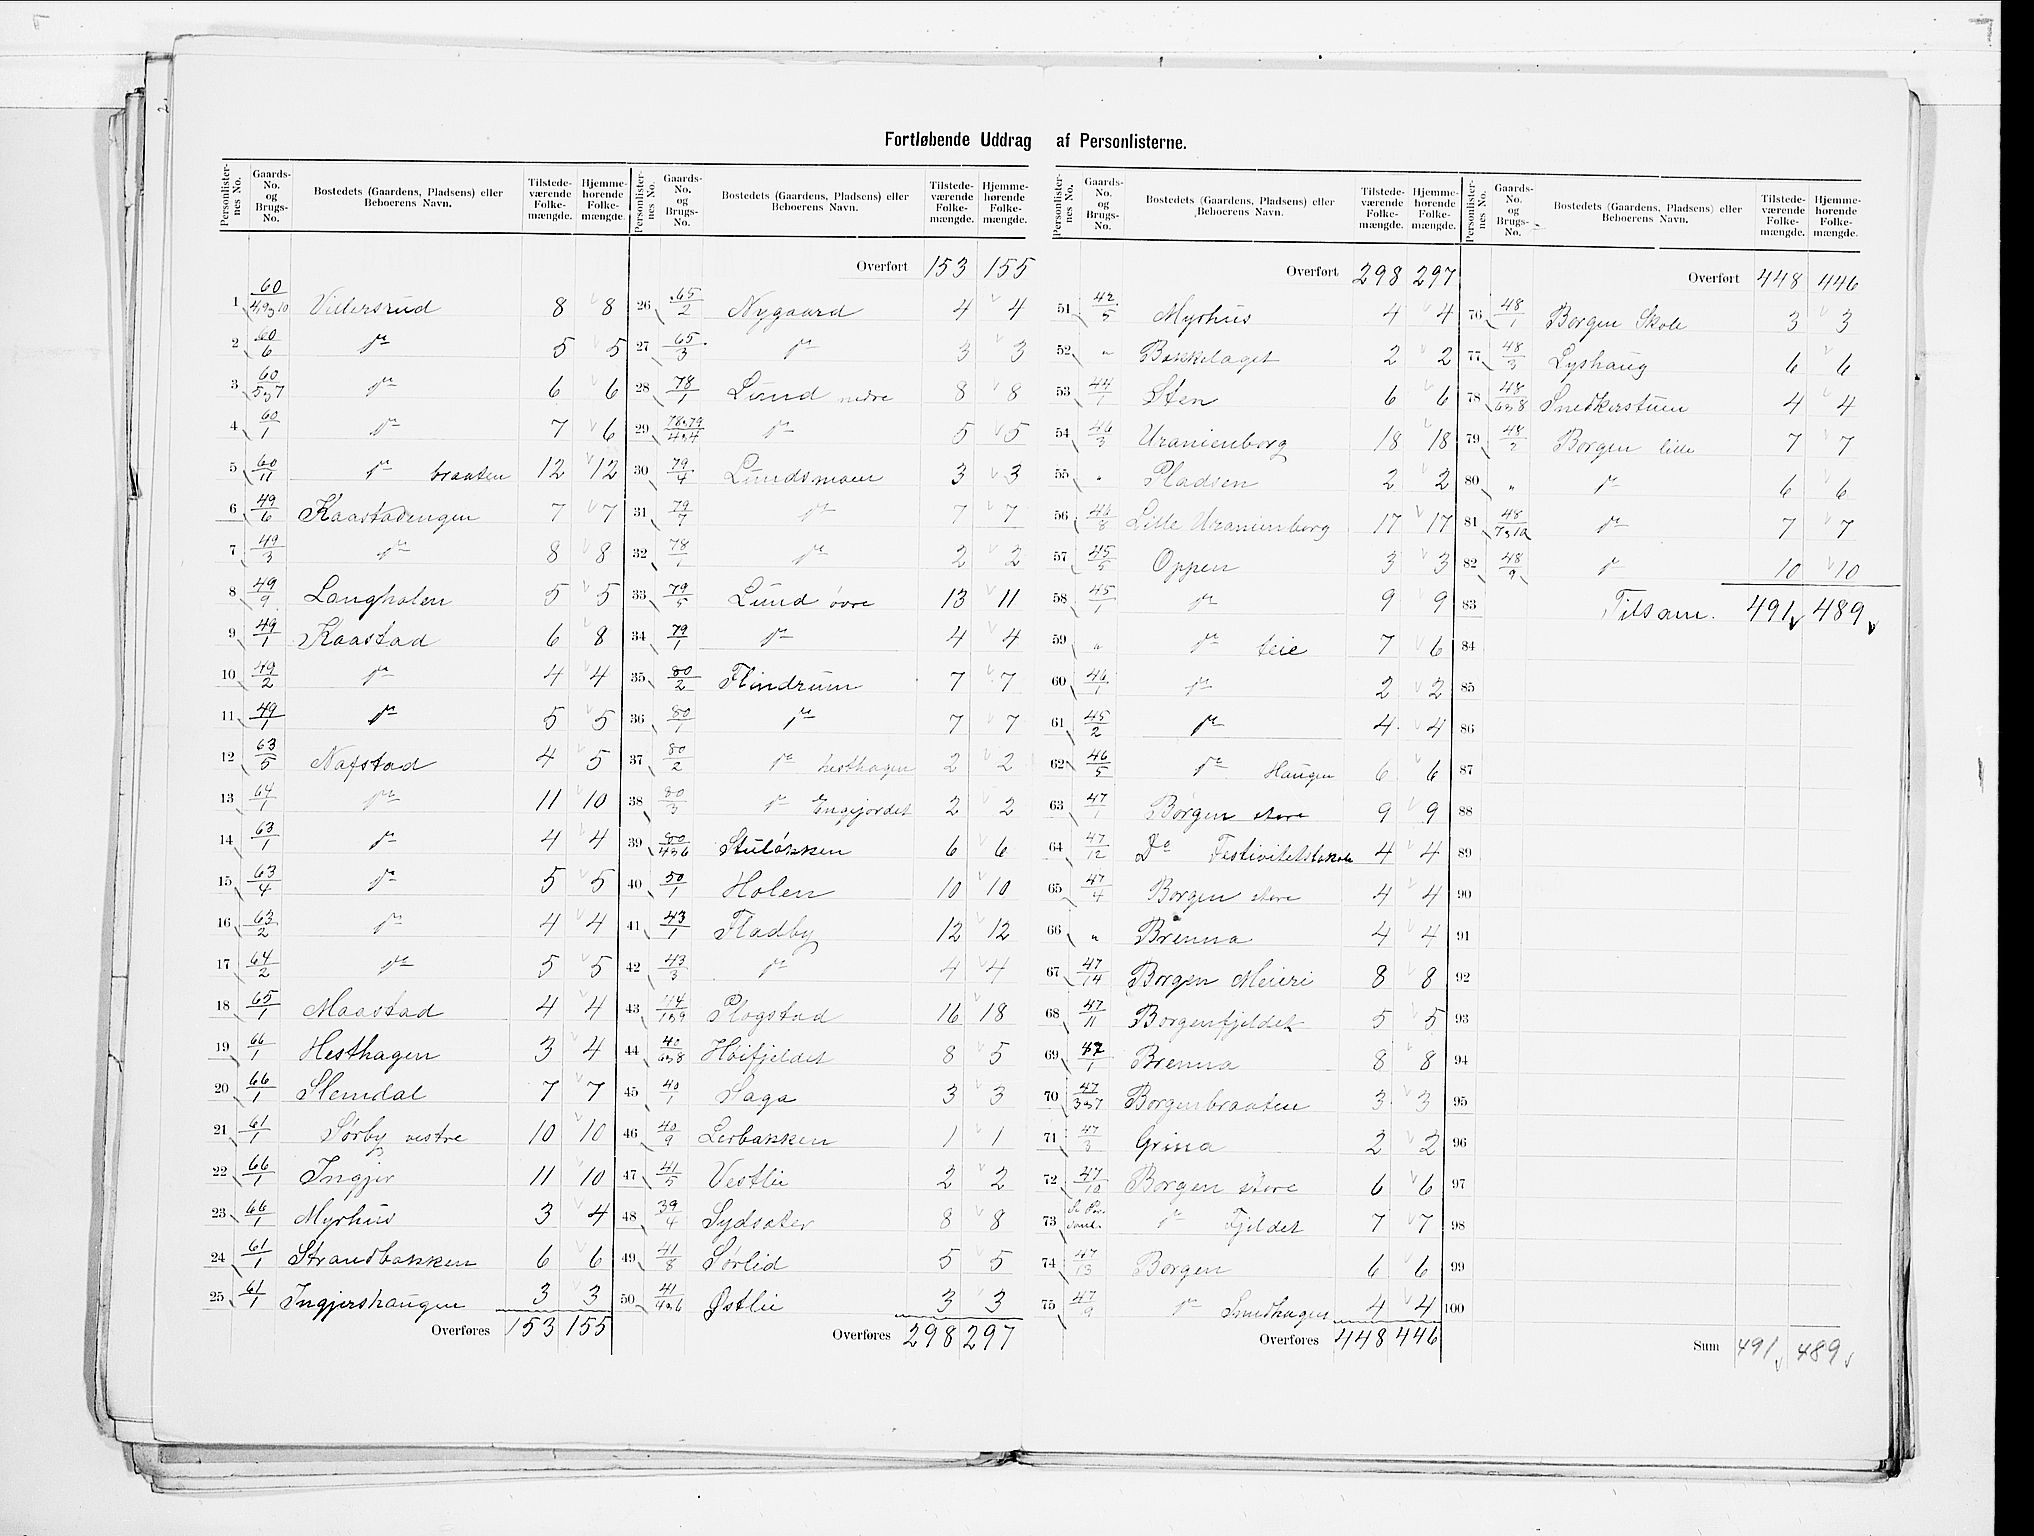 Fortløbende Uddrag af Personlisterne.
Personlister-nes No. Gaards-No. og Brugs-No. Bostedets (Gaardens, Pladsens) eller Beboerens Navn. Tilstede-værende Folke-mængde. Hjemme-hørende Folke-mængde.
1 60/4,9og10 Villersrud 8 8
2 60/6 do 5 5
3 60/5og7 do 6 6
4 60/1 do 7 6
5 60/11 do braaten 12 12
6 49/6 Kaastadengen 7 7
7 49/3 do 8 8
8 49/9 Langholen 5 5
9 49/1 Kaastad 6 8
10 49/2 do 4 4
11 49/1 do 5 5
12 63/5 Nafstad 4 5
13 64/1 do 11 10
14 63/1 do 4 4
15 63/4 do 5 5
16 63/2 do 4 4
17 64/2 do 5 5
18 65/1 Maastad 4 4
19 66/1 Hesthagen 3 4
20 66/1 Slemdal 7 7
21 61/1 Sørby vestre 10 10
22 66/1 Ingjer 11 10
23 66/1 Myrhus 3 4
24 61/1 Strandbakken 6 6
25 61/1 Ingjershaugen 3 3
Overføres 153 155
Personlister-nes No. Gaards-No. og Brugs-No. Bostedets (Gaardens, Pladsens) eller Beboerens Navn. Tilstede-værende Folke-mængde. Hjemme-hørende Folke-mængde.
Overført 153 155
26 65/2 Nygaard 4 4
27 65/3 do 3 3
28 78/1 Lund nedre 8 8
29 78og79/4og4 do 5 5
30 79/4 Lundsmoen 3 3
31 79/7 do 7 7
32 78/1 do 2 2
33 79/5 Lund øvre 13 11
34 79/1 do 4 4
35 80/2 Flindrum 7 7
36 80/1 do 7 7
37 80/2 do hesthagen 2 2
38 80/3 do Engejordet 2 2
39 80/4og6 Stuløkken 6 6
40 50/1 Holen 10 10
41 43/1 Fladby 12 12
42 43/3 do 4 4
43 44/1og9 Plogstad 16 18
44 40/6og8 Høifjeldet 8 5
45 40/1 Saga 3 3
46 40/9 Lerbakken 1 1
47 41/5 Vestlie 2 2
48 39/4 Sydsæter 8 8
49 41/8 Sørlid 5 5
50 41/4og6 Østlie 3 3
Overføres 298 297
Personlister-nes No. Gaards-No. og Brugs-No. Bostedets (Gaardens, Pladsens) eller Beboerens Navn. Tilstede-værende Folke-mængde. Hjemme-hørende Folke-mængde.
Overført 298 297
51 42/5 Myrhus 4 4
52 " Bakkelaget 2 2
53 44/1 Sten 6 6
54 46/3 Uranienborg 18 18
55 " Pladsen 2 2
56 46/8 Lille Uranienborg 17 17
57 45/5 Oppen 3 3
58 45/1 do 9 9
59 " do teie 7 6
60 46/1 do 2 2
61 45/2 do 4 4
62 46/5 do Haugen 6 6
63 47/1 Borgen store 9 9
64 47/12 Do Festivitetslokale 4 4
65 47/4 Borgen store 4 4
66 " Brenna 4 4
67 47/14 Borgen Meieri 8 8
68 47/11 Borgenfjeldet 5 5
69 47/1 Brenna 8 8
70 47/3og7 Borgenbraaten 3 3
71 47/3 Grina 2 2
72 47/10 Borgen store 6 6
73 do Fjeldet 7 7
74 47/13 Borgen 6 6
75 47/9 do Smedhagen 4 4
Overføres 448 446
Personlister-nes No. Gaards-No. og Brugs-No. Bostedets (Gaardens, Pladsens) eller Beboerens Navn. Tilstede-værende Folke-mængde. Hjemme-hørende Folke-mængde.
Overført 448 446
76 48/1 Borgen Skole 3 3
77 48/3 Lyshaug 6 6
78 48/6og8 Snedkerstuen 4 4
79 48/2 Borgen lille 7 7
80 " do 6 6
81 48/7og10 do 7 7
82 48/9 do 10 10
83 Tilsam. 491 489
84
85
86
87
88
89
90
91
92
93
94
95
96
97
98
99
100
Sum 491 489